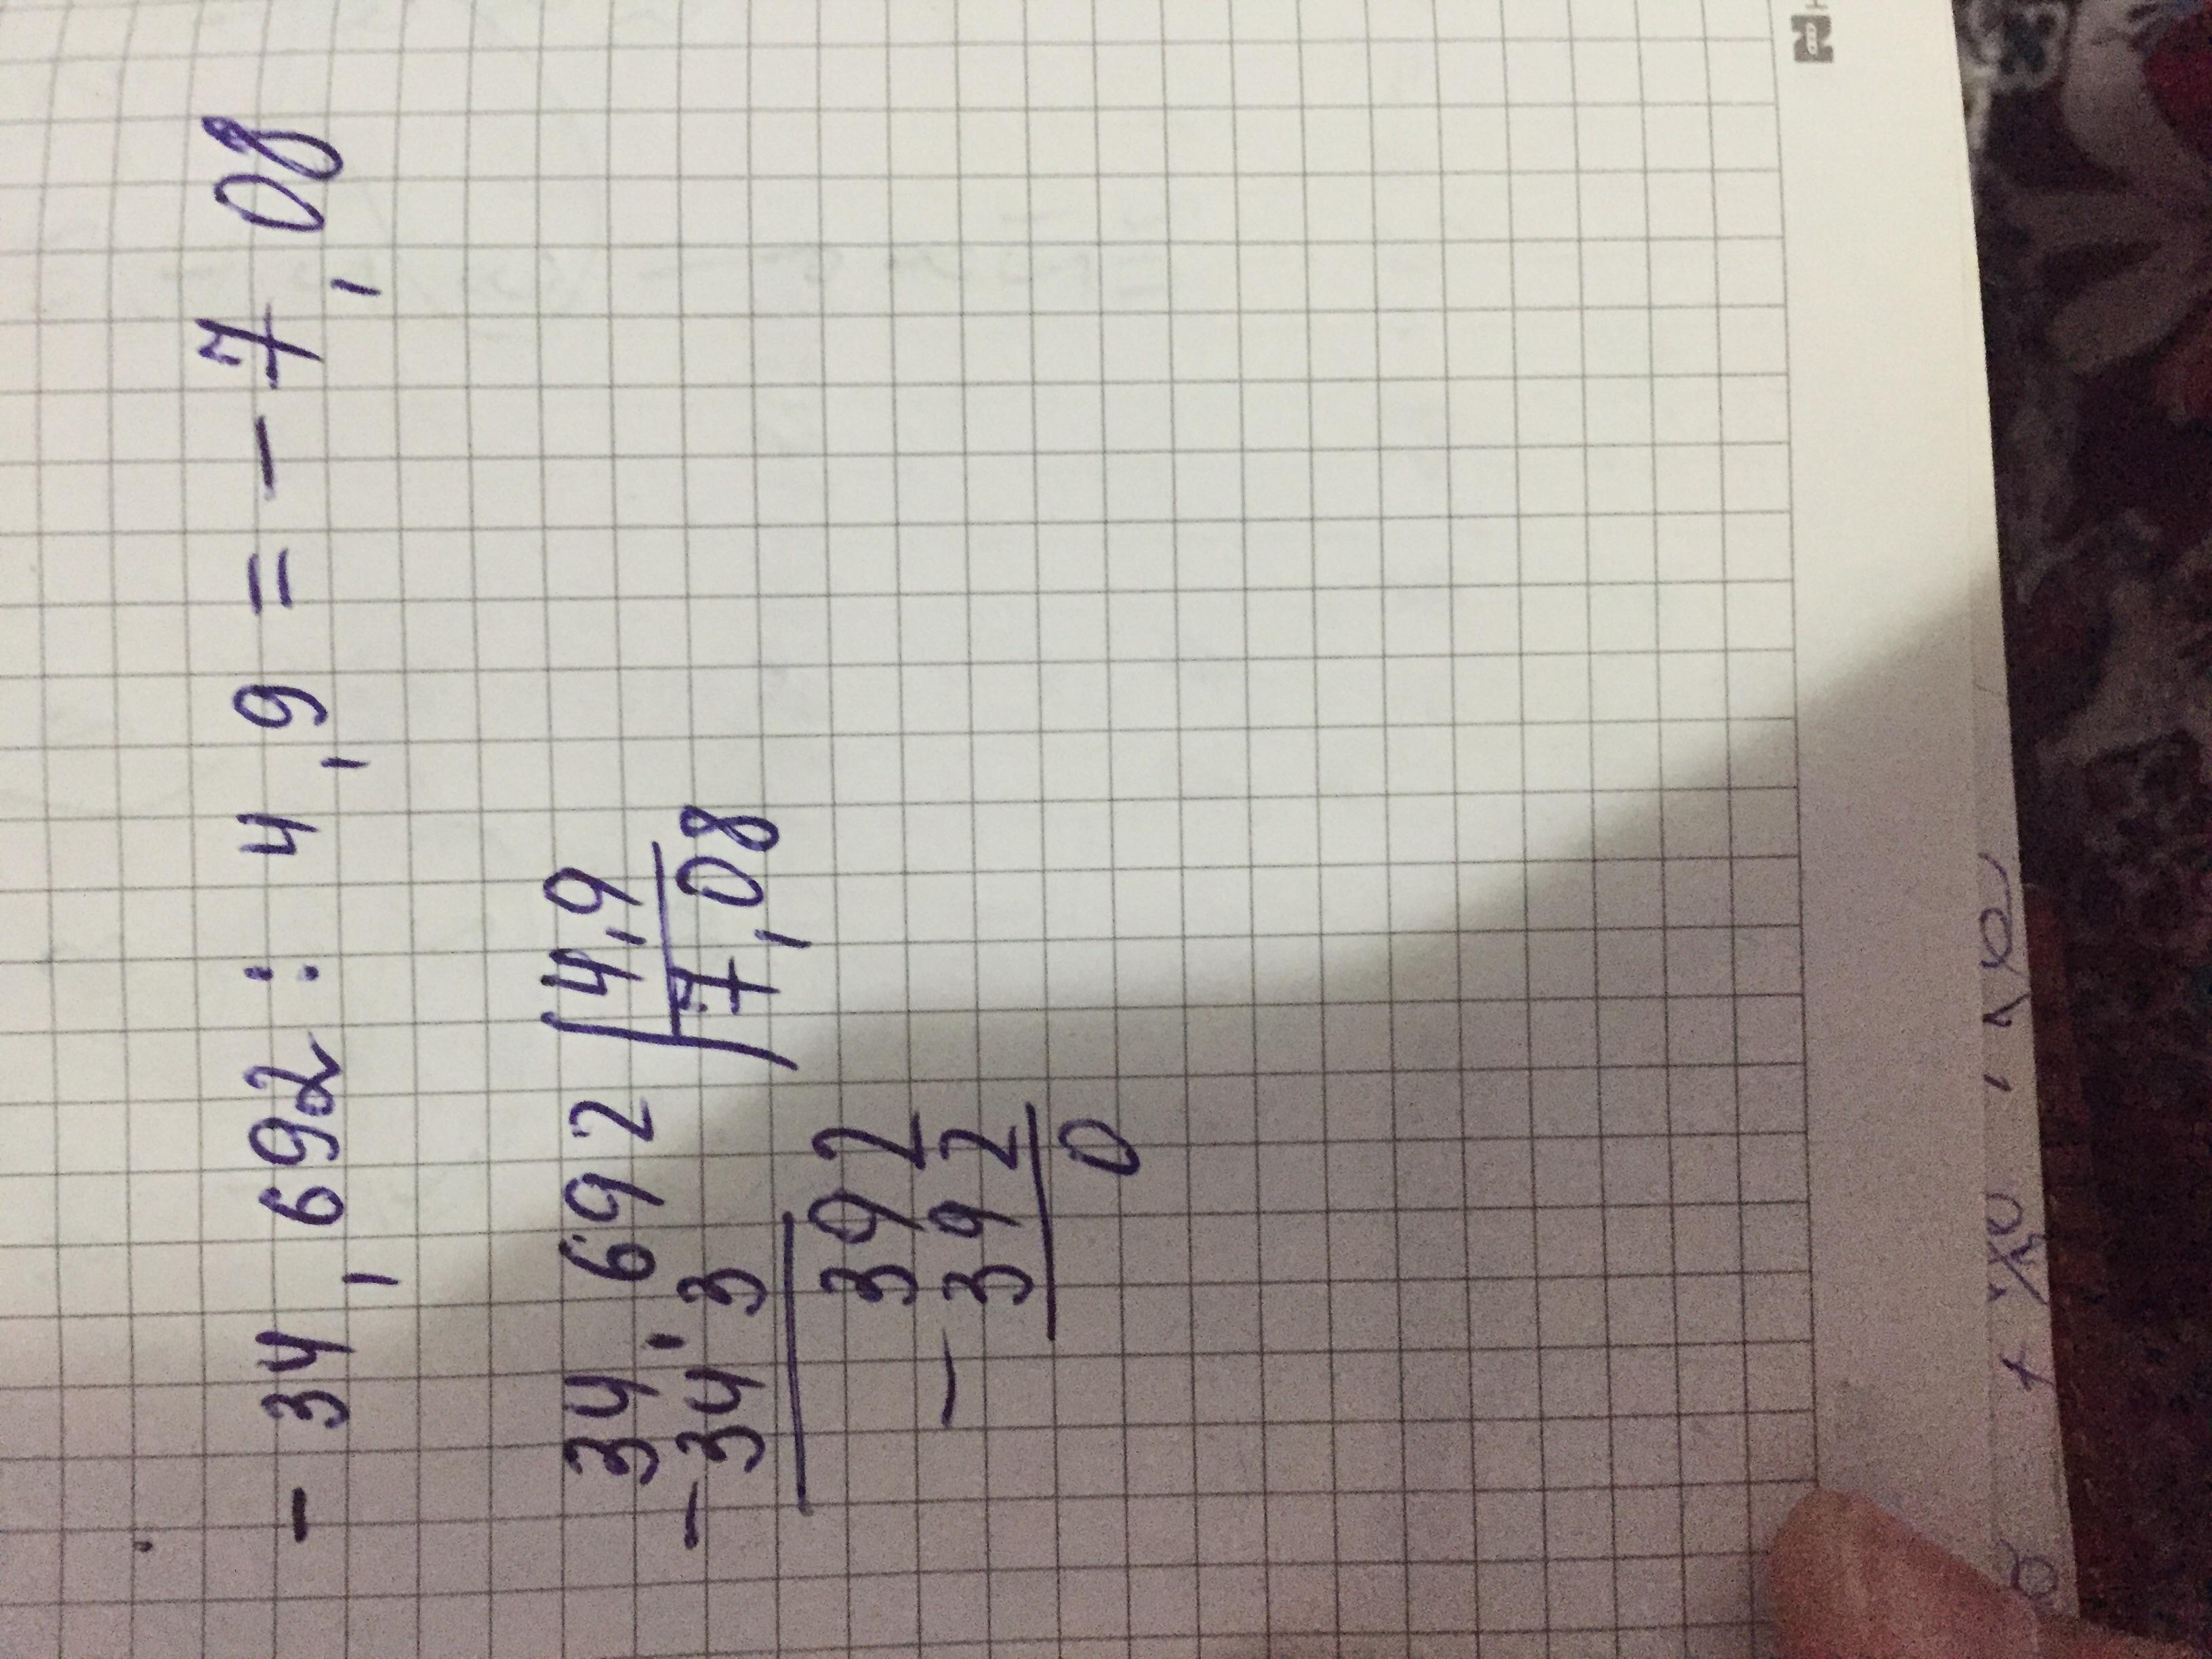 - 34,692 : 4,9 = - 7,08
34,692 4,9
- 34,3 7,08
392
- 392
0